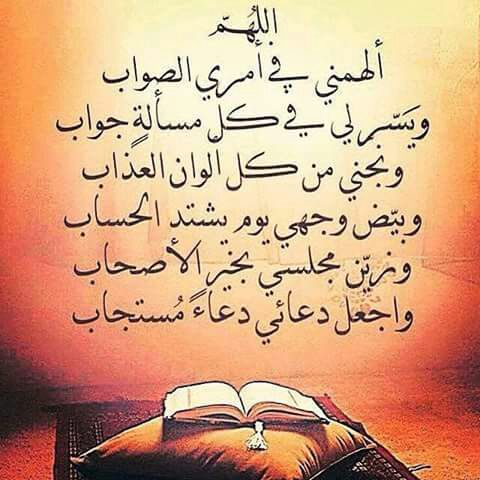 اللهُمّ
ألهمني في أمري الصواب
ويَسّر لي في كل مسألةٍ جواب
ونجني من كل الوان العذاب
وبيّض وجهي يوم يشتد الحساب
وزيّن مجلسي بخير الأصحاب
واجعل دعائي دعاءً مُستجاب